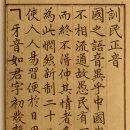 訓民正音
國之語音異乎中國
不相流通故愚民有
而終不得伸其情者
為此憫然新制二十
使人人易習便於日用
ㄱ牙音如君字初發聲